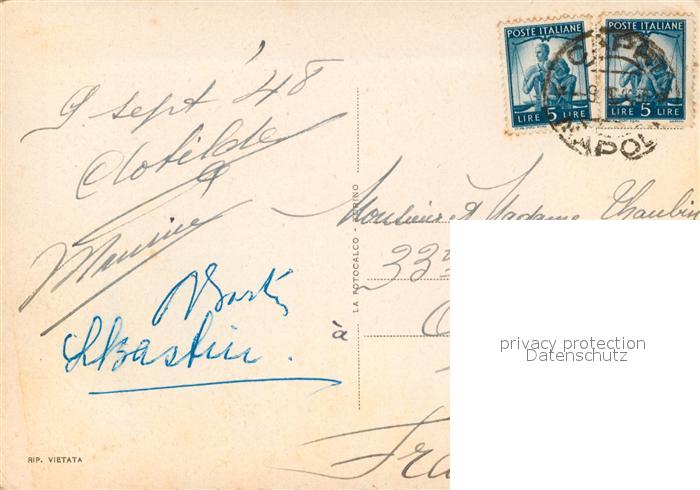 POSTE ITALIANE
LIRE 5 LIRE
POSTE ITALIANE
LIRE 5 LIRE
CAPRI
NAPOLI
9 sept '48
Clotilde
Maurice
Sebastien.
LA FOTOCALCO - TORINO
Monsieur et Madame
33
à
Fra
RIP. VIETATA
privacy protection
Datenschutz